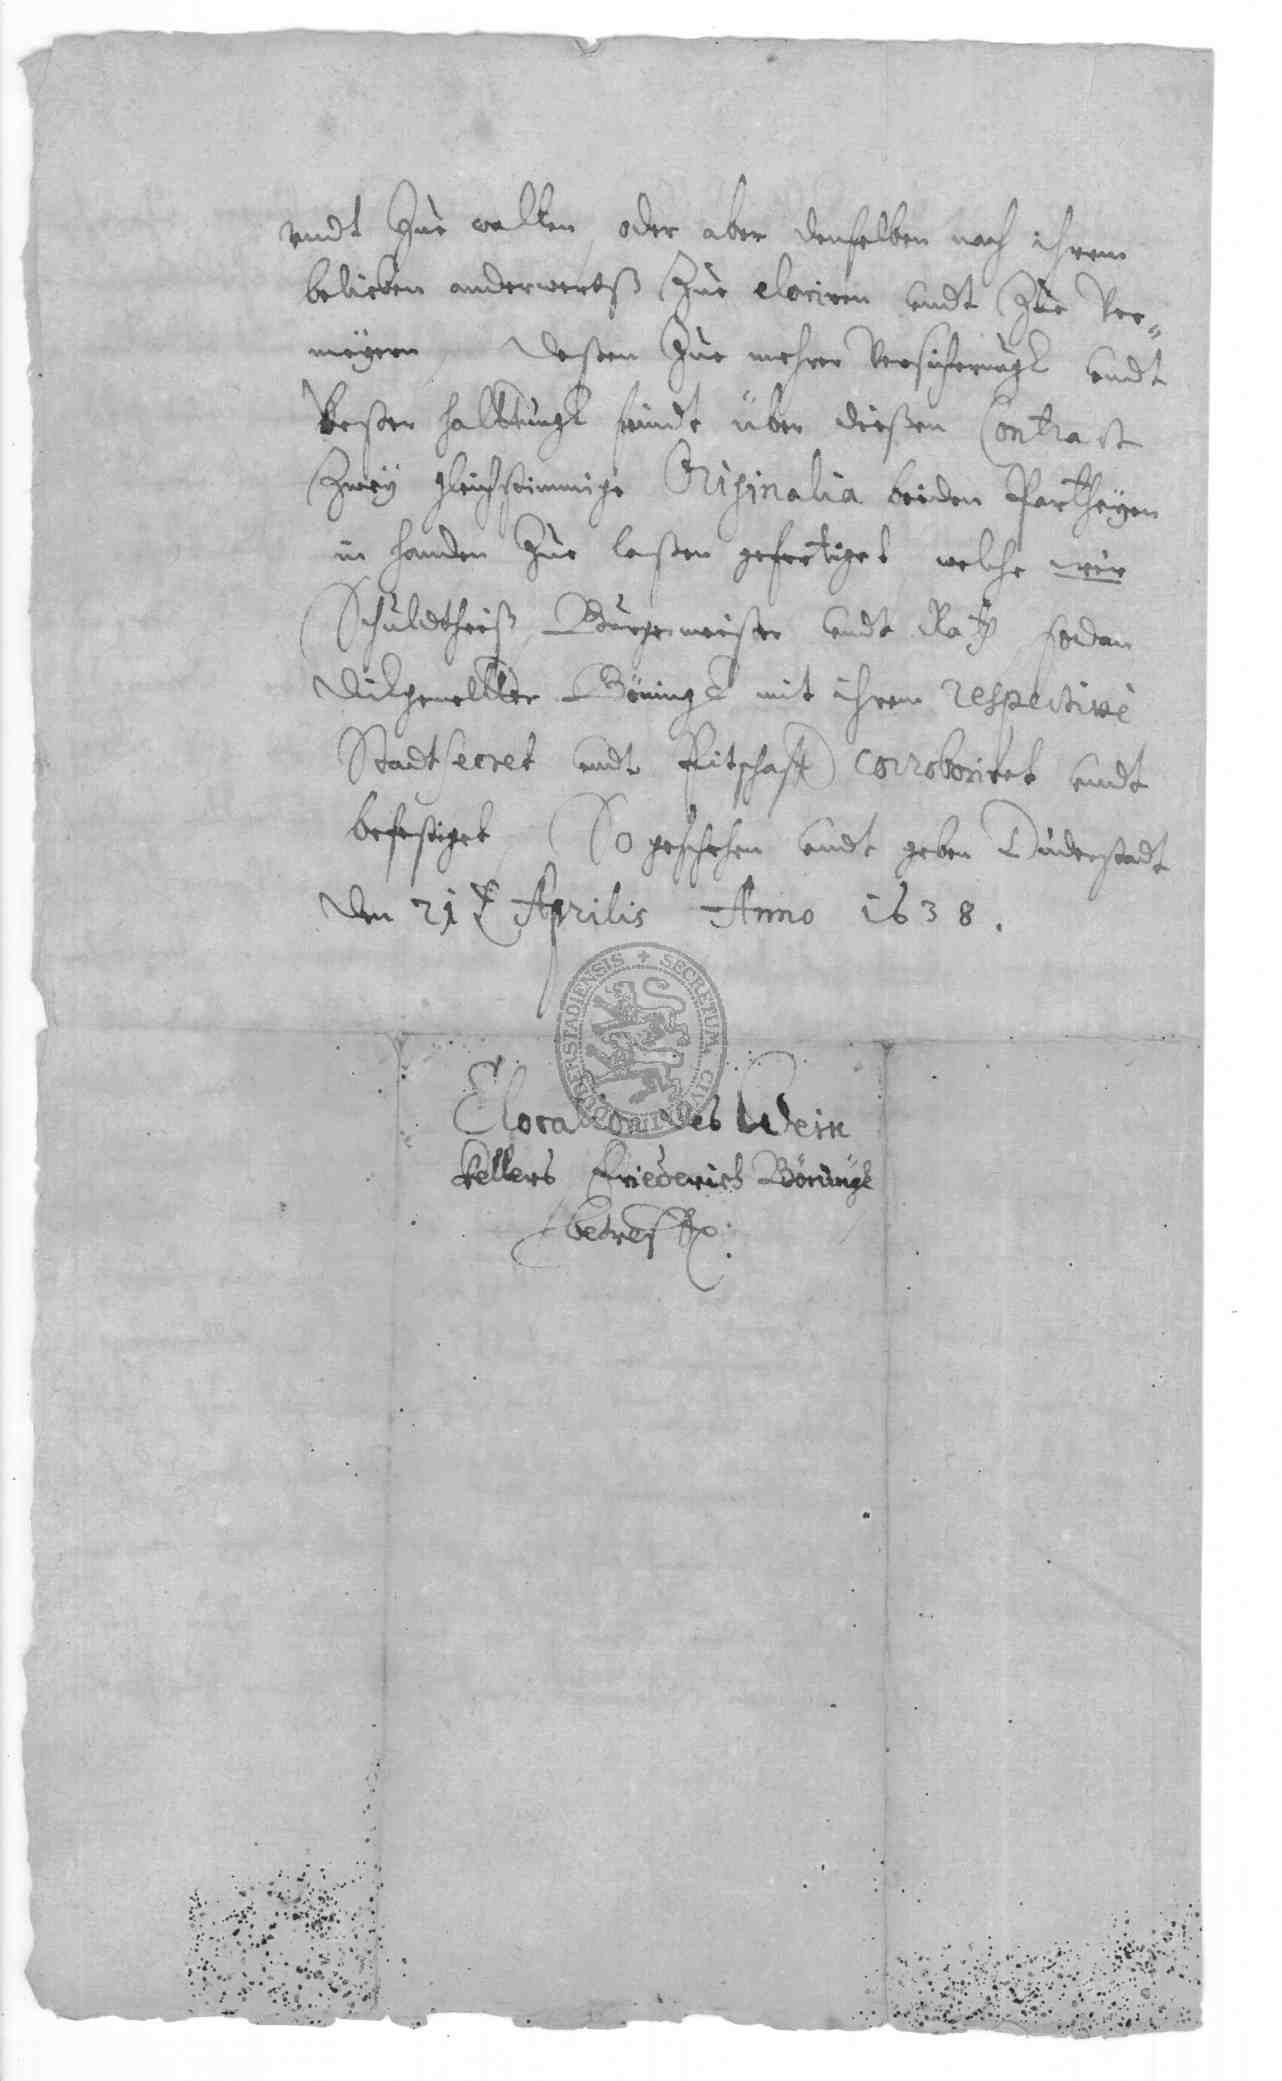 undt Zue walten, oder aber denselben nach ihrem
belieben anderwertß Zue elociren undt Zue Ver-
meyern, Deßen Zue mehrer Versicherungk undt
vester halttungk seindt über dießen Contract
Zwey gleichstimmige Originalia beiden Partheyen
in handen Zue laßen gefertiget welche wir
Schuldtheiß, Burgermeister undt Rath sodan
Böningk mit ihrem respectivè
StadtSecret undt Pitschafft corroboriret undt
befestiget, So geschehen undt geben Duderstadt
den 21t Aprilis Anno 1638.
SECRETUM CIVIUM DUDERSTADIENSIS
Elocation des Wein
kellers Friederich Böningk
betreff: